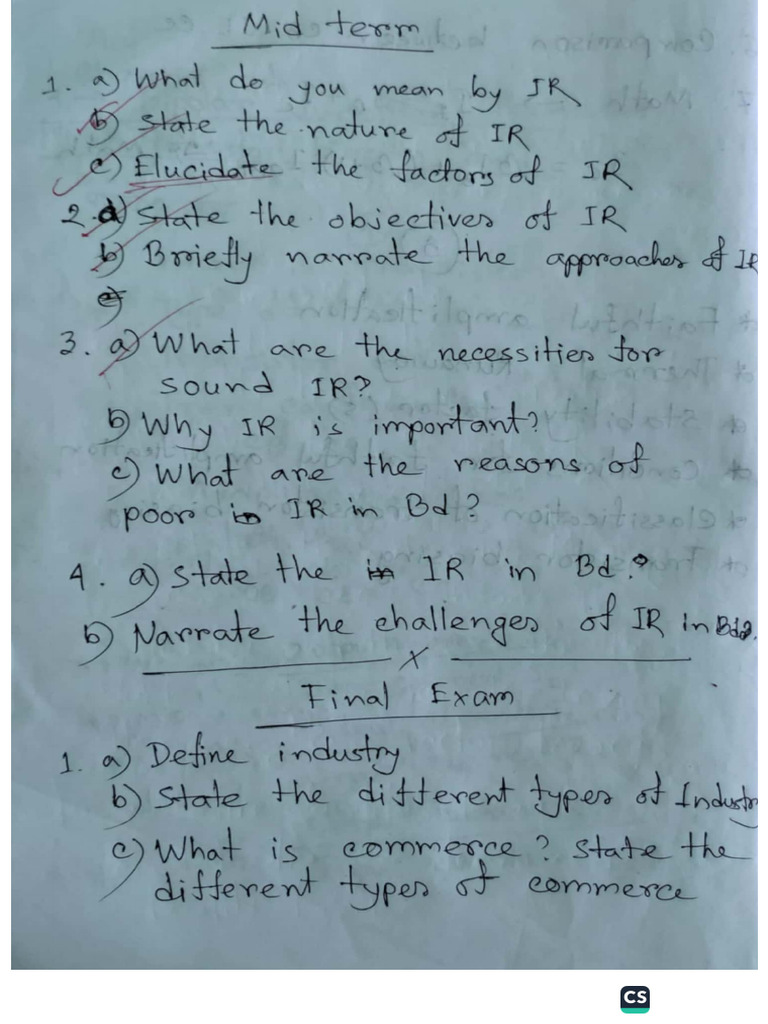 Mid term
1. a) What do you mean by IR
b) State the nature of IR
c) Elucidate the factors of IR
2. a) State the objectives of IR
b) Briefly narrate the approaches of IR
3. a) What are the necessities for
sound IR?
b) Why IR is important?
c) What are the reasons of
poor in IR in Bd?
4. a) State the in IR in Bd?
b) Narrate the challenges of IR in Bd?
x
Final Exam
1. a) Define industry
b) State the different types of Industry
c) What is commerce? State the
different types of commerce
CS